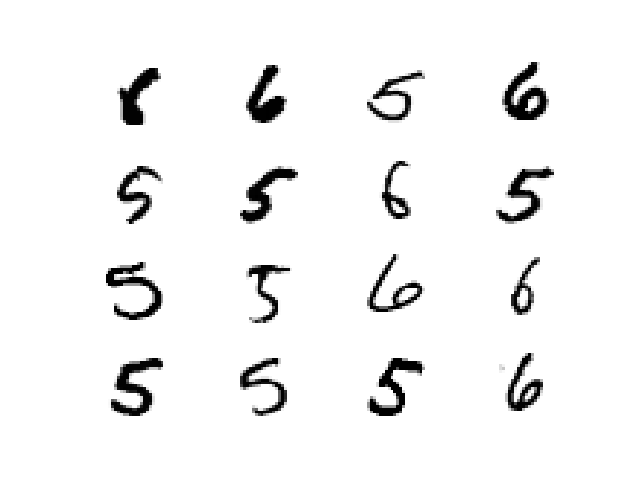 6 5 6
5 5 6 5
5 5 6 6
5 5 5 6